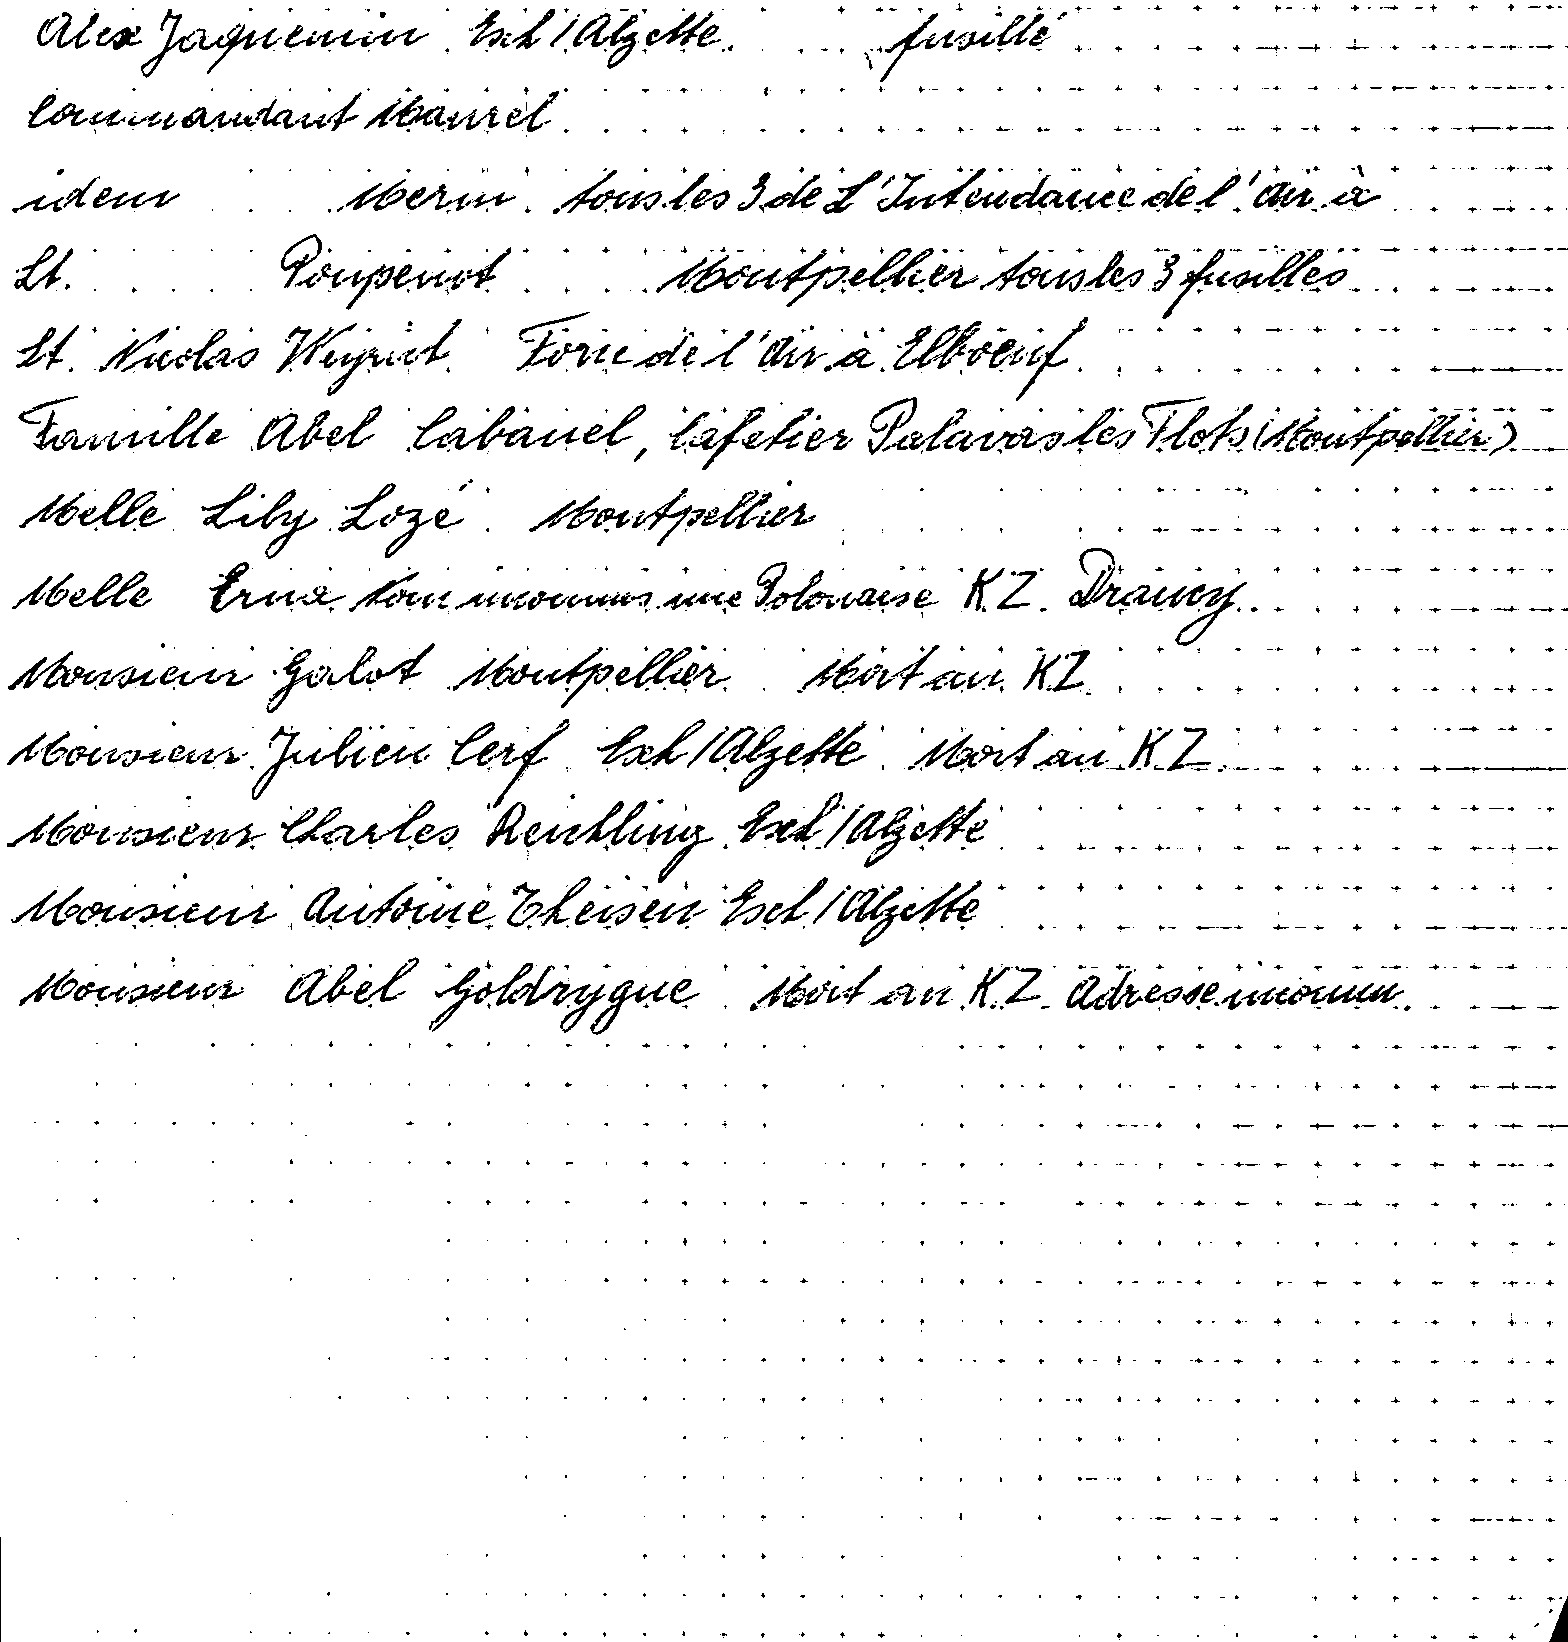 Alex Jaquemin Esch/Alzette fusillé
Commandant Maurel
idem Merin tous les 3 de L'Intendance de l'Air à
Lt. Poupenot Montpellier tous les 3 fusillés
Lt. Nicolas Weyrich Force de l'Air à Elboeuf
Famille Abel Cabanel, Cafetier Palavas les Flots (Montpellier)
Melle Lily Lozé Montpellier
Melle Erna Nom inconnus une Polonaise K.Z. Drancy
Monsieur Galot Montpellier Mort au KZ
Monsieur Julien Cerf Esch/Alzette Mort au KZ
Monsieur Charles Reichling Esch/Alzette
Monsieur Antoine Theisen Esch/Alzette
Monsieur Abel Goldrygue Mort au K.Z. Adresse inconnu.